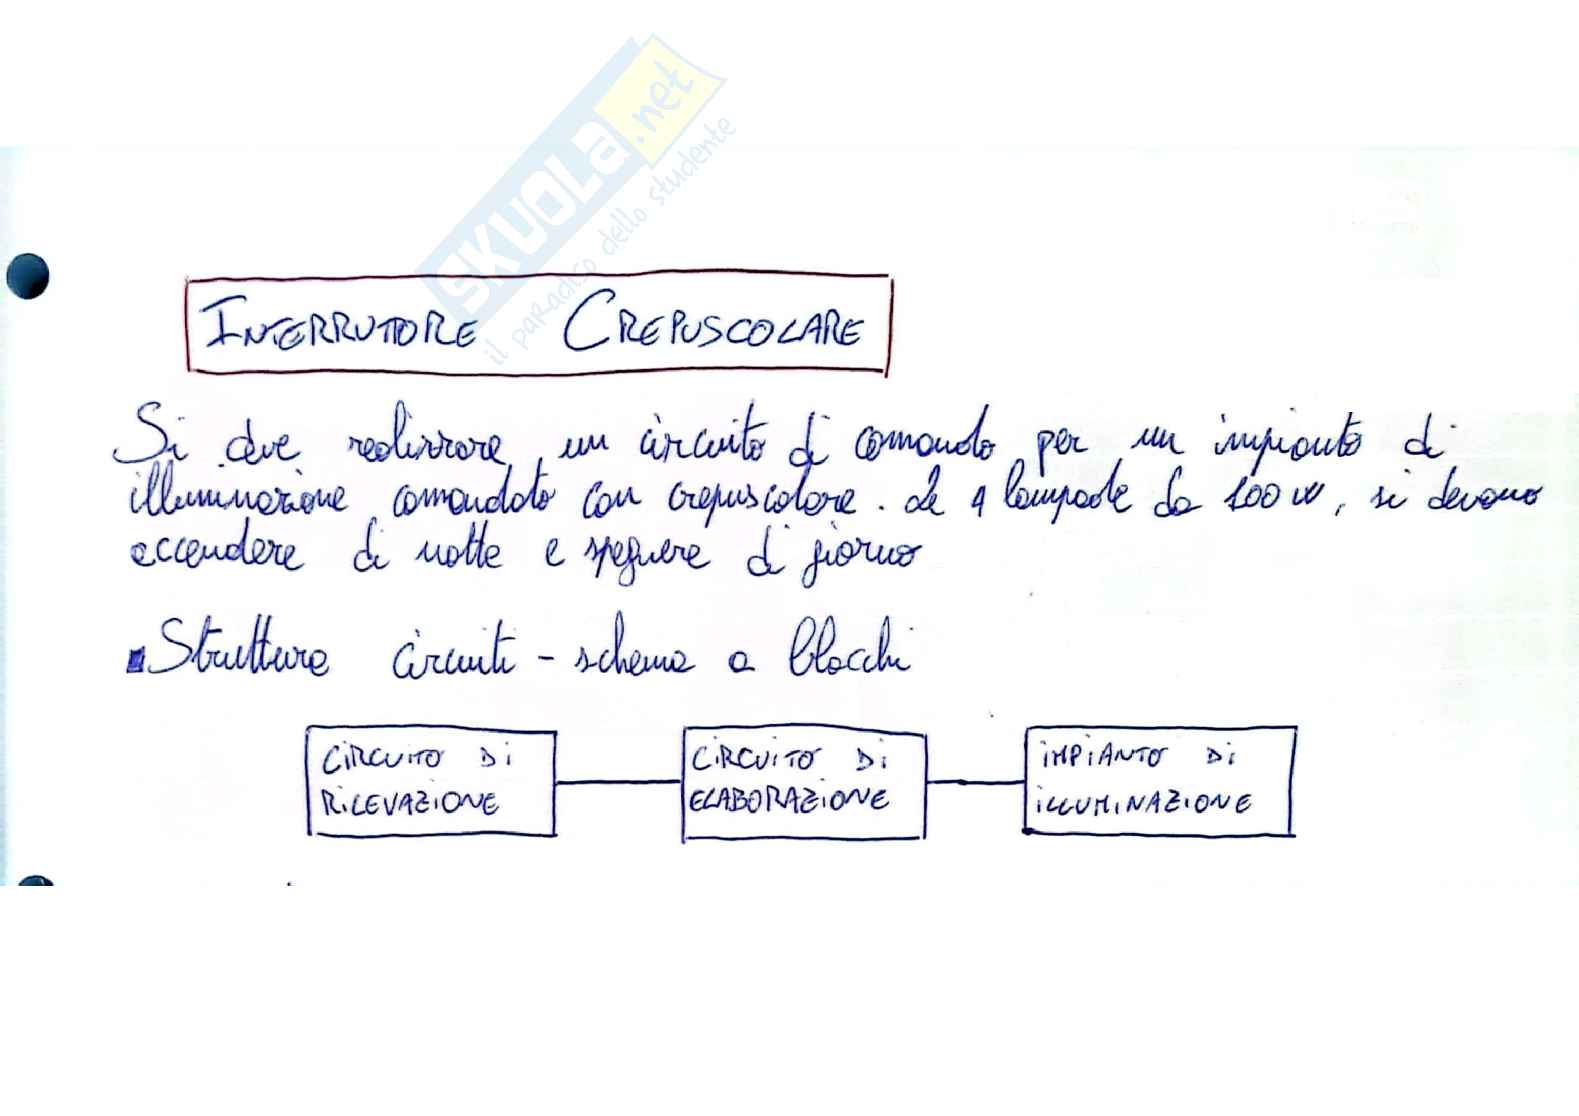 SKUOLA.net
il paradiso dello studente
INTERRUTTORE CREPUSCOLARE
Si deve realizzare un circuito di comando per un impianto di
illuminazione comandato con crepuscolare. Le 4 lampade da 100 W, si devono
accendere di notte e spegnere di giorno
Struttura circuiti - schema a blocchi
CIRCUITO DI
RILEVAZIONE
CIRCUITO DI
ELABORAZIONE
IMPIANTO DI
ILLUMINAZIONE